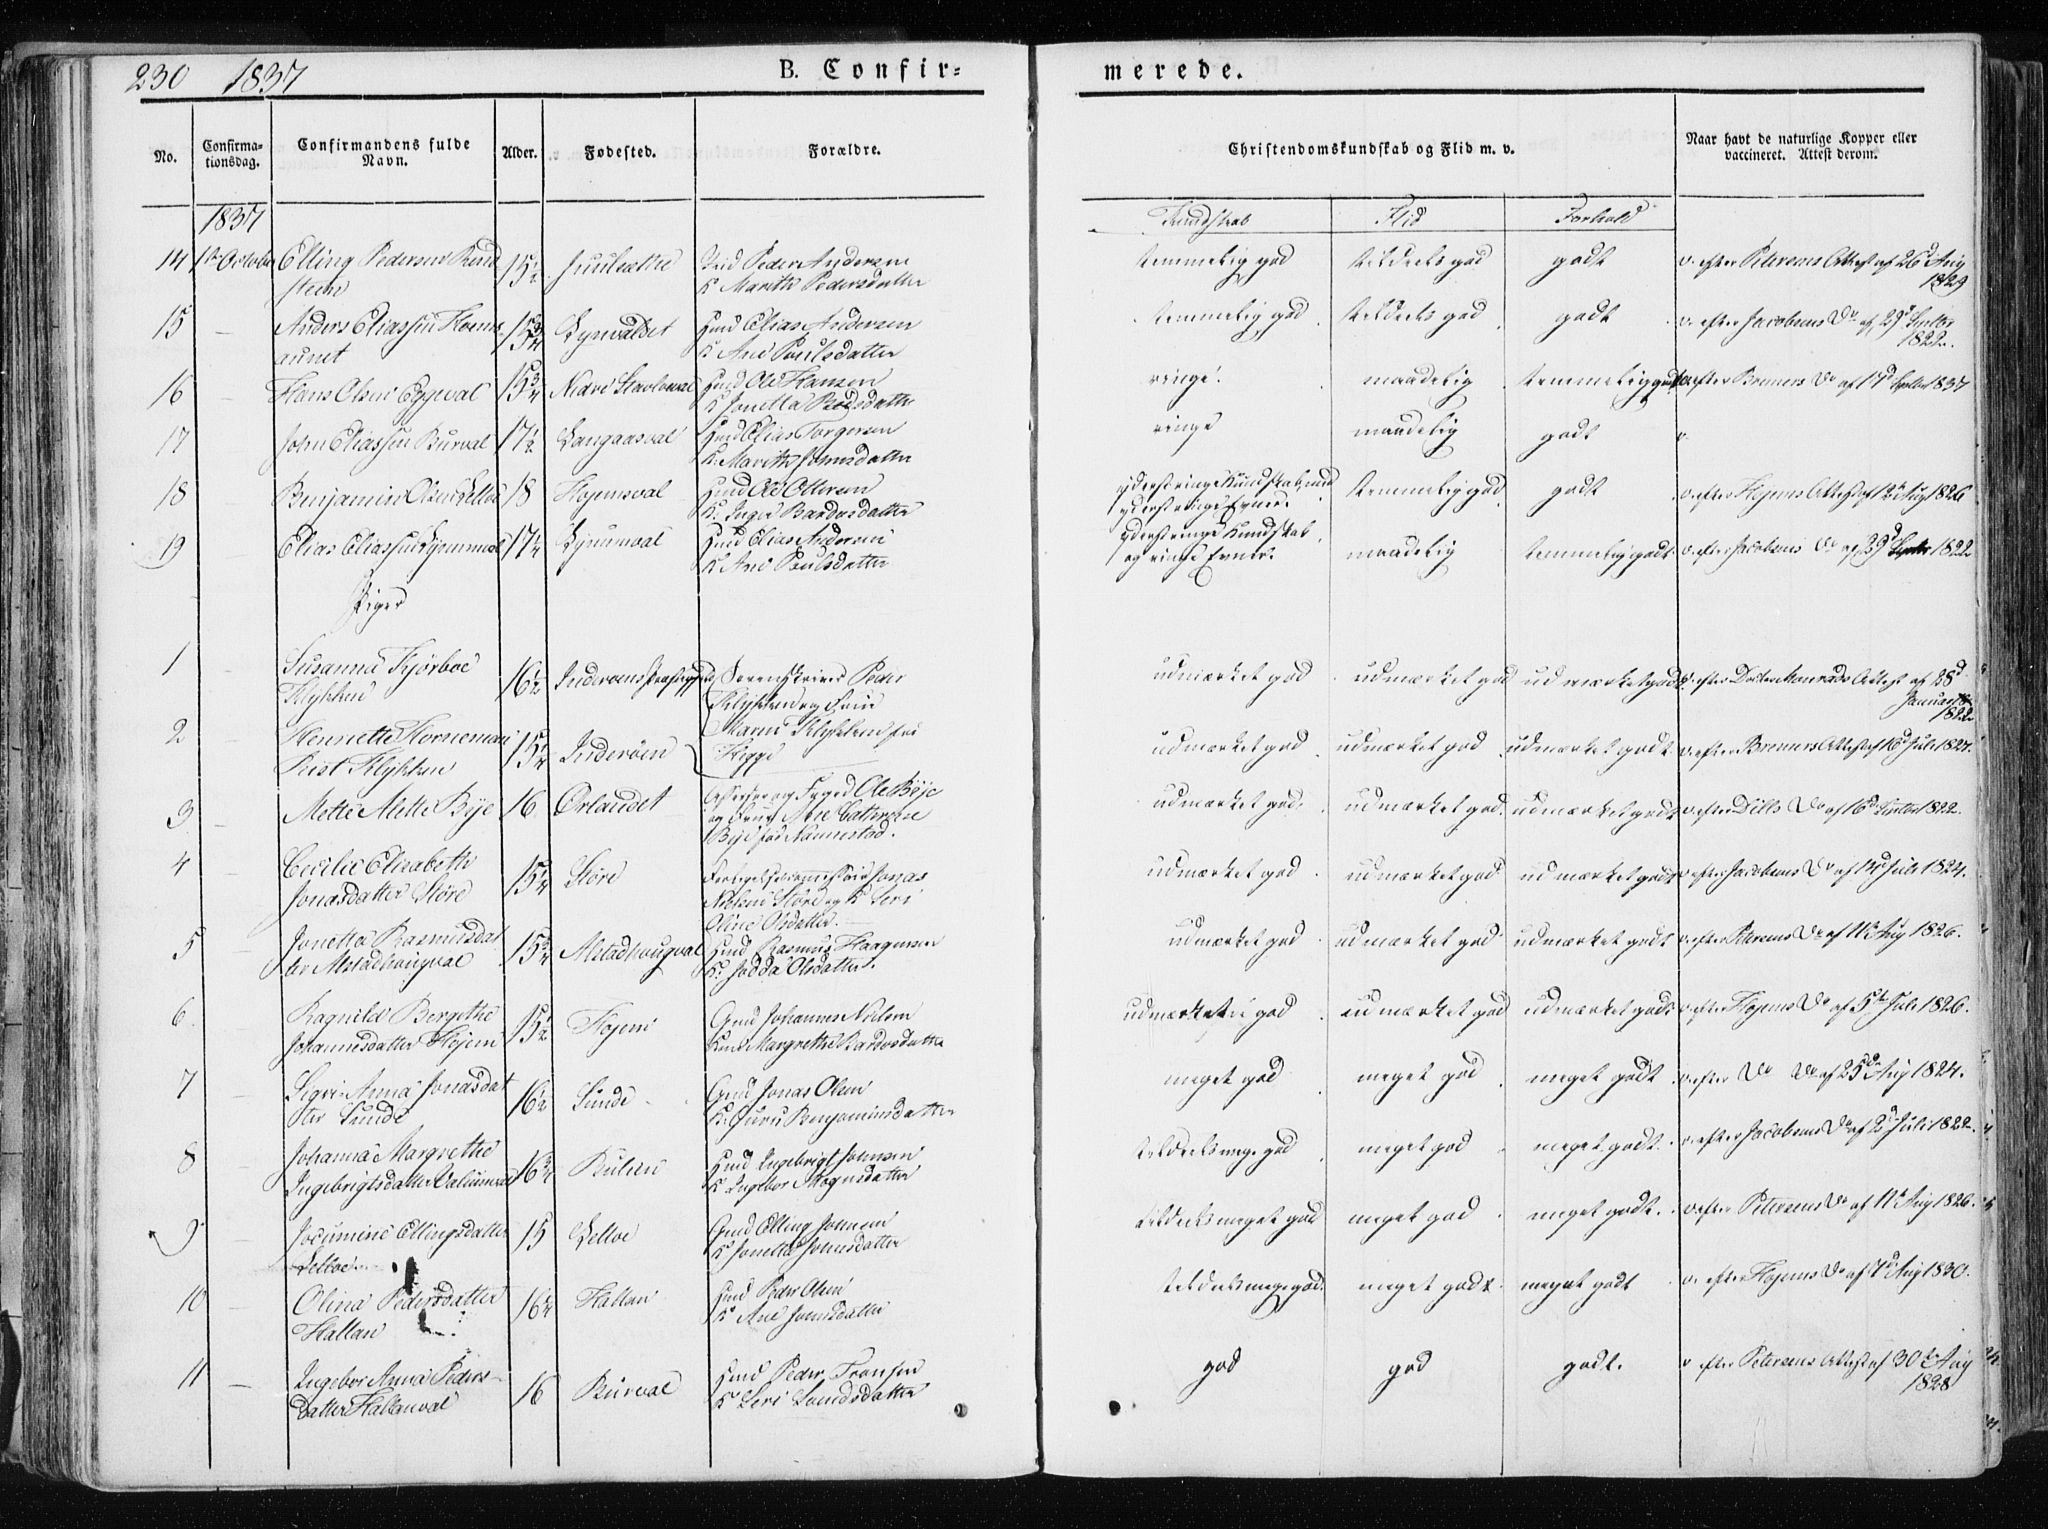 230 1837 B. Confirmerede.
No. Confirmationsdag. Confirmandens fulde Navn. Alder. Fødested. Forældre. Christendomskundskab og Flid m. v. Naar havt de naturlige Kopper eller vaccineret. Attest derom.
1837 Kundskab Flid Forhold
14 1ste October Elling Pedersen 15½ Peder Andersen K Marith Pedersdatter temmelig god tildeels god godt v. efter Petersens Attest af 26d Aug 1829
15 — Anders Eliassen 15¾ Hmd Elias Andersen K Ane Poulsdatter temmelig god tildeels god godt v. efter Jacobsens Do af 29d Septbr 1822.
16 — Hans Olsen Eggeval 15¾ Hmd Ole Hansen K Jonetta ringe. maadelig temmelig godt v. efter Bremers Do af 17d Septbr 1837
17 — John Eliassen Burval 17½ Langaasval Hmd Elias Torgersen K. Marith Jonnsdatter ringe maadelig godt v.
18 — Benjamin Olsen 18 Hojemsval Hmd Ole Ottersen K. Inger Bardosdatter yderst ringe Kundskab, med yderst ringe Evner. temmelig god godt v. efter Hojems Attest af 12te Aug 1826
19 — Elias Eliassen 17¼ Hmd Elias Andersen K Ane Poulsdatter yderst ringe Kundskab og ringe Evner. maadelig temmelig godt v. efter Jacobsens Do af 29d Septbr 1822
Piger
1 — Susanna Kjörboe Klykken 16½ Inderøens Præstegjeld Sorenskriver Peder Klykken og Frue Maren Klykken fød Hegge udmærket god udmærket god udmærket godt v. efter Doctor Monrads Attest af 28d Januar 1822
2 — Henriette Horneman Kist Klykken 15¼ Inderøen udmærket god udmærket god udmærket godt v. efter Bremers Attest af 16d Juli 1827.
3 — Mette Alette Bye 16 Ørlandet og Foged Ole Bye og Frue Ane Cathrine Bye fød Nannestad. udmærket god. udmærket god. udmærket godt v. efter Dills Do af 16d Septbr 1822.
4 Cecilie Elisabeth Jonasdatter Störe 15¼ Störe Forligelsescommissair Jonas Nielsen Störe og K Seri Oline Olsdatter. udmærket god udmærket god udmærket godt v. efter Jacobsens Do af 14d Juli 1824.
5 — Jonetta Rasmusdatter Alstadhougval 15¾ Alstadhougval Hmd Rasmus Haagensen K. Jödda Olsdatter. udmærket god udmærket god udmærket godt v. efter Petersens Do af 11te Aug 1826.
6. — Ragnild Bergithe Johannesdatter Höjem 15½ Hojem Gmd Johannes Nielsen Kone Margrethe Bardosdatter god udmærket god udmærket godt v. efter Hojems Do af 5te Juli 1826.
7 — Sigri Anna Jonasdatter Sunde 16½ Sunde Gmd Jonas Olsen K. Guru Benjaminsdatter meget god meget god meget godt v. efter Do Do af 25de Aug 1824.
8 — Johanna Margrethe Ingebrigtsdatter 16¾ Hmd Ingebrigt Johnsen K Ingebor Mognsdatter tildeels meget god meget god meget godt. v. efter Jacobsens Do af 2d Juli 1822.
9 — Jocumine Ellingsdatter 15 Gmd Elling Johnsen K Jonetta Jonnsdatter tildeels meget god meget god meget godt. v. efter Petersens Do af 11te Aug 1826.
10 — Olina Pedersdatter Hallan 16½ Hallan Hmd Peder Olsen K Ane Jonnsdatter tildeels meget god. meget godt meget godt v. efter Hojems Do af 7d Aug 1830.
11 — Ingebor Anna Pedersdatter Hallanval 16 Burval Hmd Peder K Seri god god godt. v. efter Petersens Attest af 30te Aug 1828